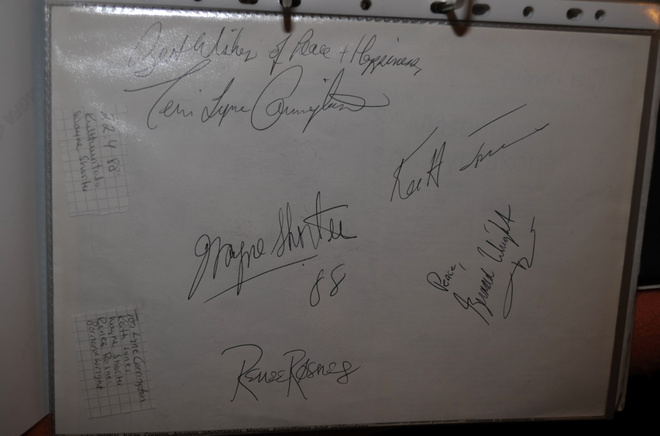 Best Wishes of Peace + Happiness,
Terri Lyne Carrington
Keith
Wayne Shorter
88
Peace,
Bernard Wright
Renee Rosnes
22 4 88
Wayne Shorter
Terri Lyne Carrington
Keith Jones
Wayne Shorter
Renee Rosnes
Bernard Wright